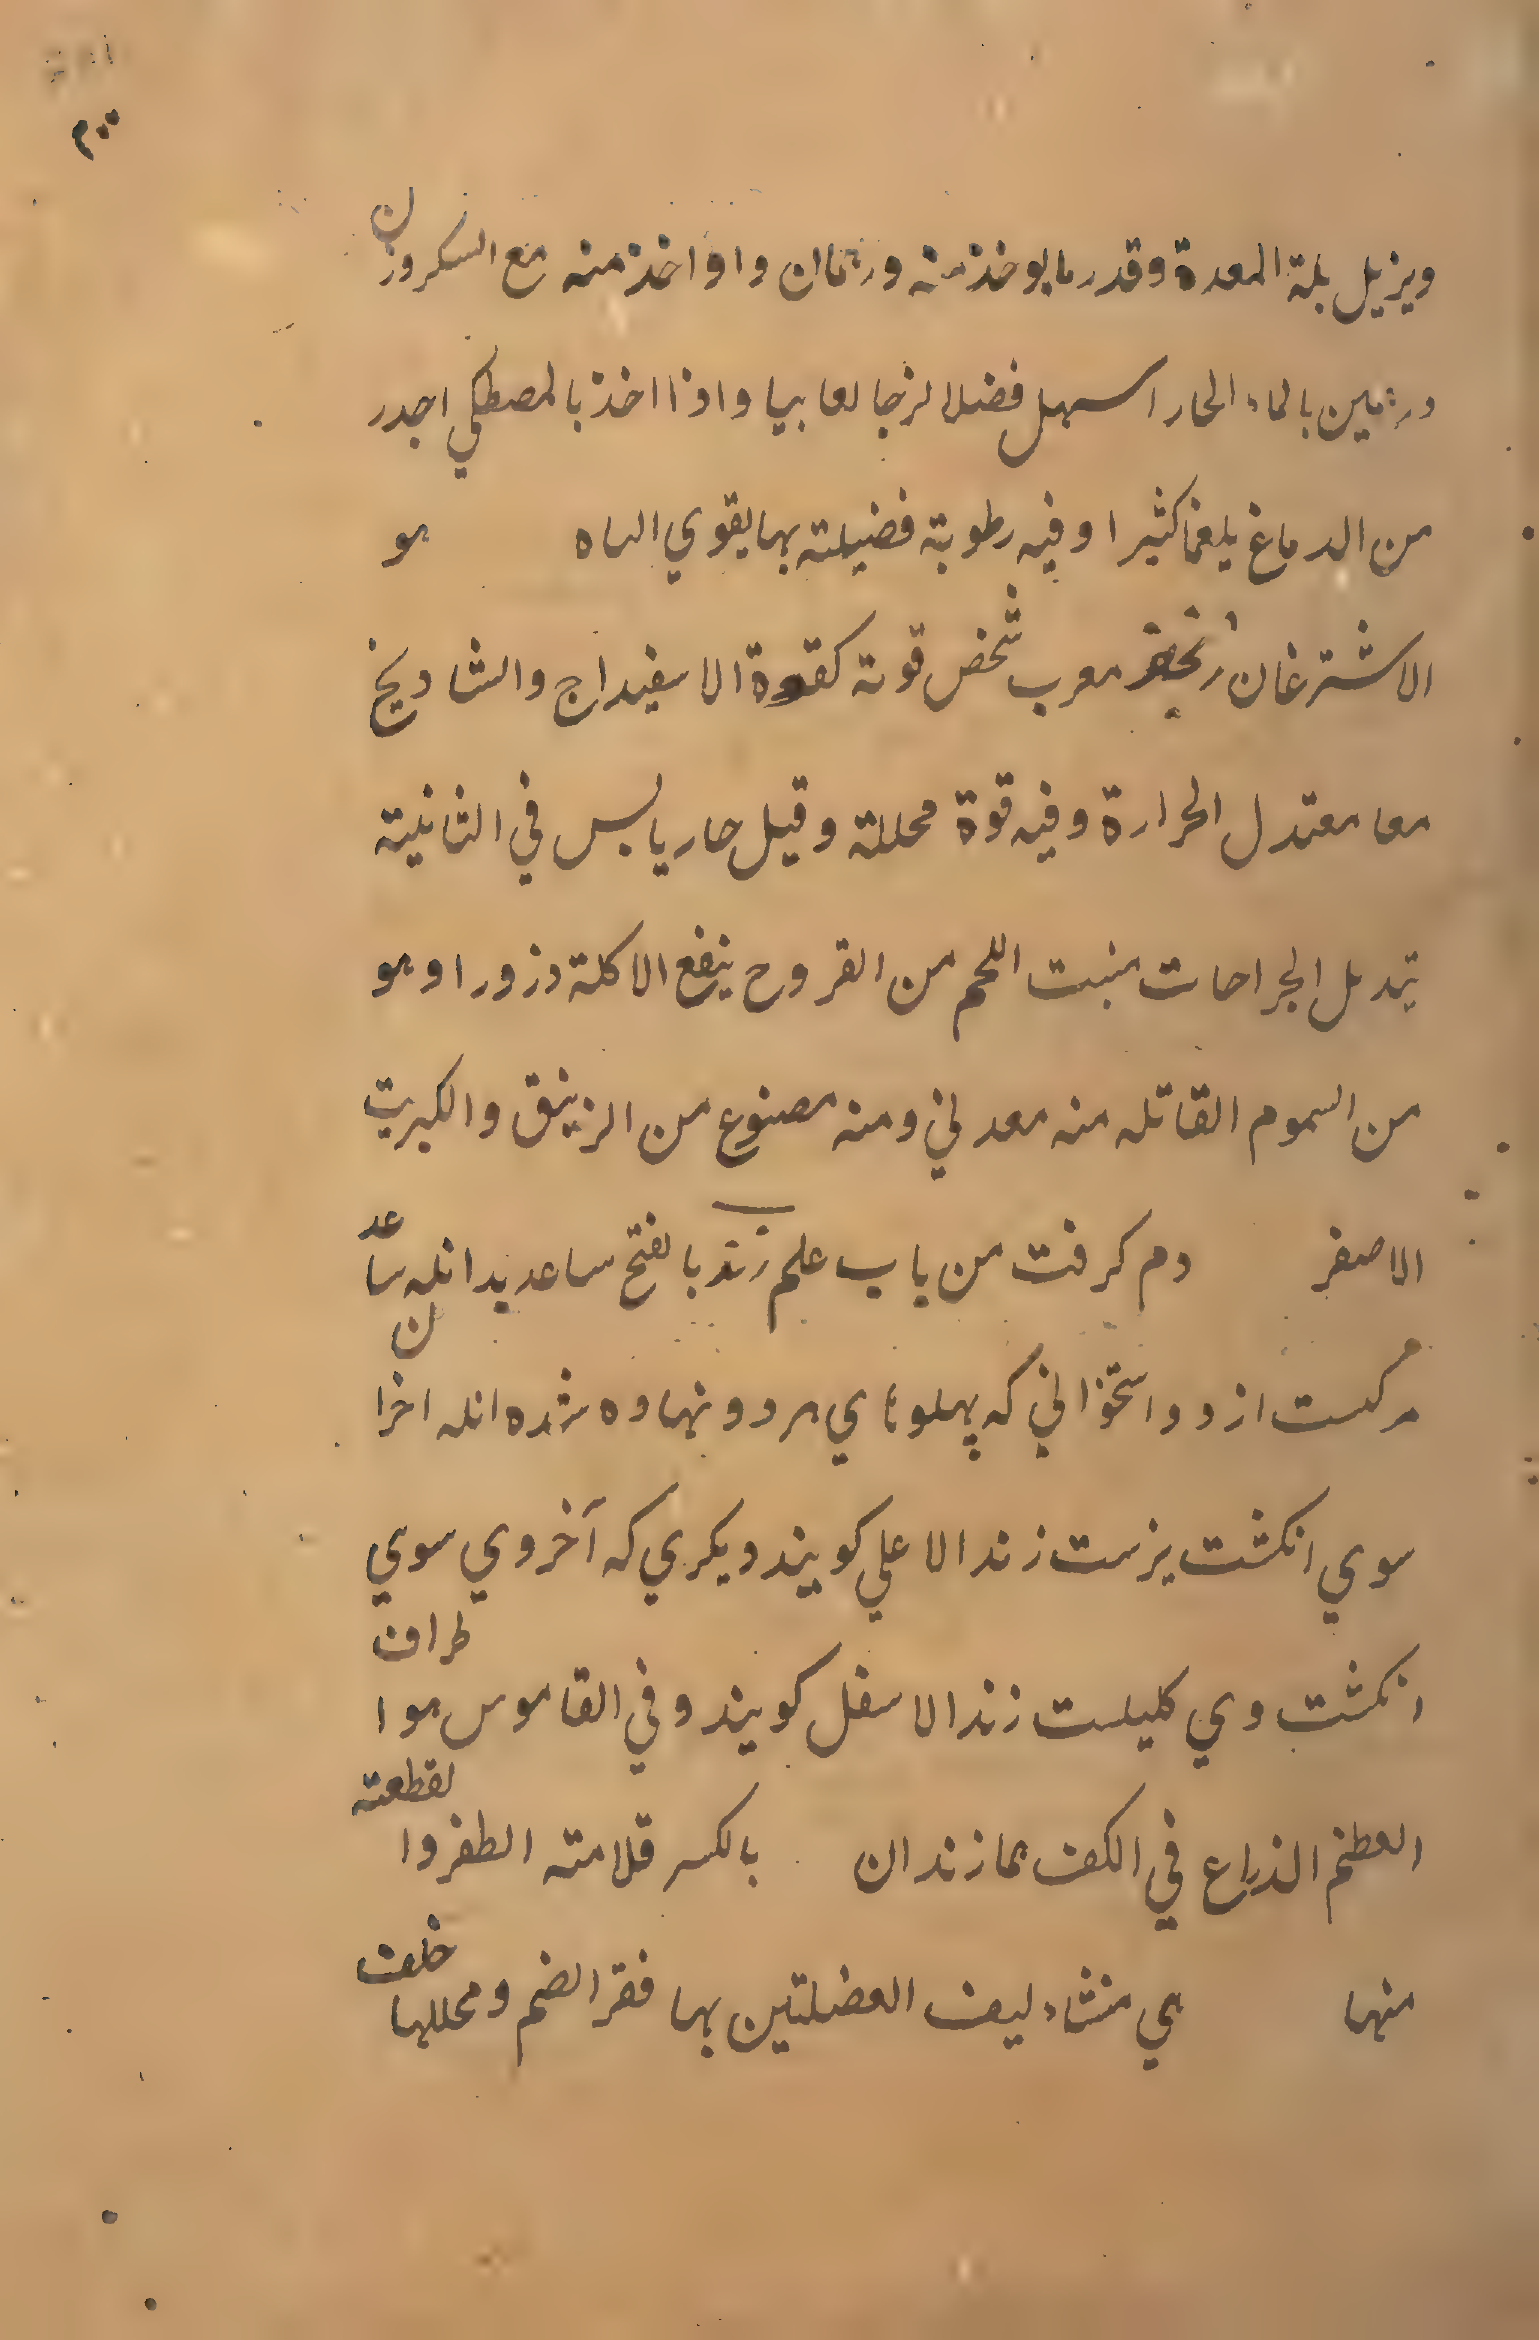 ۲۰۰
ويزيل بلة المعدة وقدر ما يوخذ منه ورهمان واوا اخذ منه مع السكر وزن
درهمين بالماء الحار اسهل فضلا لزجا لعابيا واذا اخذ بالمصطكي اجدر
من الدماغ بلغما كثيرا وفيه رطوبة فضيلته بها يقوي الباه هو
الاشترغان معرب شخص قوته كقوة الاسفيداج والشاديخ
معا معتدل الحرارة وفيه قوة محللة وقيل حار يابس في الثانيته
تدمل الجراحات منبت اللحم من القروح ينفع الاكلة دزورا وهو
من السموم القاتله منه معدني ومنه مصنوع من الزيبق والكبريت
الاصفر دم كرفت من باب علم زند بالفتح ساعد بدانله ساعد
مركبست از دو استخوانی که پهلوهاي هر دو نهاده شده انله اخرا ن
سوي انكشت بزست زند الاعلي كويند ديكري كه آخر وي سوي
انكشت وي كليلست زند الاسفل كويند وفي القاموس هو اطراف
العظم الذراع في الكف هما زندان بالكسر قلامته الظفر والقطعته
منها هي منشاء ليف العضلتين بها فقر الضم ومحللها خلف